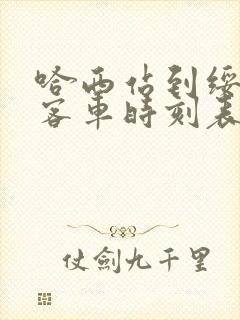 哈西站到绥
客車時刻表
仗劍九千里